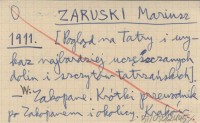 ZARUSKI Mariusz
1911. [Pogląd na Tatry i wy-
kaz najbardziej uczęszczanych
dolin i szczytów tatrzańskich].
W: Zakopane. Krótki przewodnik
po Zakopanem i okolicy. Kraków